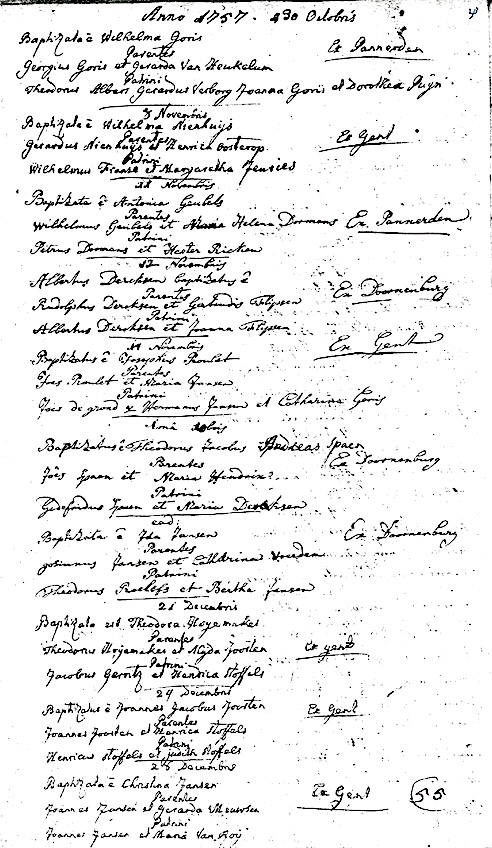 Anno 1757. 30 Octobris
Baptizata ē Wilhelma Goris
Ex Pannerden
Parentes
Georgius Goris et Gerarda Van Heukelum
Patrini
Theodorus Albers Gerardus Verborg Joanna Goris et Dorothea
3 Novembris
Baptizata ē Wilhelma Nienhuijs
Ex Gent
Parentes
Gerardus Nienhuijs et Henrica
Patrini
Wilhelmus Franse et Margaretha
11 Novembris
Baptizata ē Antonia Geubels
Parentes
Wilhelmus Geubels et Maria Helena Dormans Ex Pannerden
Patrini
Petrus Dormans et Hester Ricken
12 Novembris
Albertus Dercksen baptizatus ē
Ex Doornenburg
Parentes
Rudolphus Dercksen et Gertrudis Flipsen
Patrini
Albertus Dercksen et Joanna Flipsen
Novembris
Ex Gent
Baptizatus ē Josephus Roulet
Parentes
Roulet et Maria Jansen
Patrini
Joes de grood Hermanus Jansen et Catharina Goris
Baptizatus ē Theodorus Jacobus Andreas Spaen
Ex Doornenburg
Parentes
Joēs Spaen et Maria
Patrini
Godefridus Spaen et Maria Dercksen
ead.
Baptizata ē Ida Jansen
Ex Doornenburg
Parentes
Jansen et Catharina
Patrini
Theodorus Roelofs et Bertha Jansen
21 Decembris
Baptizata est Theodora Hoyemakes
Parentes
Theodorus Hojemakes et Alyda Joosten
Ex gent
Patrini
Jacobus Gerritz et Henrica Stoffels
24 Decembris
Baptizatus ē Joannes Jacobus Joosten
Ex Gent
Parentes
Joannes Joosten et Henrica Stoffels
Patrini
Henricus Stoffels et judith Stoffels
25 Decembris
Baptizata ē Christina Jansen
Ex Gent
55
Parentes
Joannes Jansen et Gerarda Meuwsen
Patrini
Joannes Jansen et Maria Van Roy